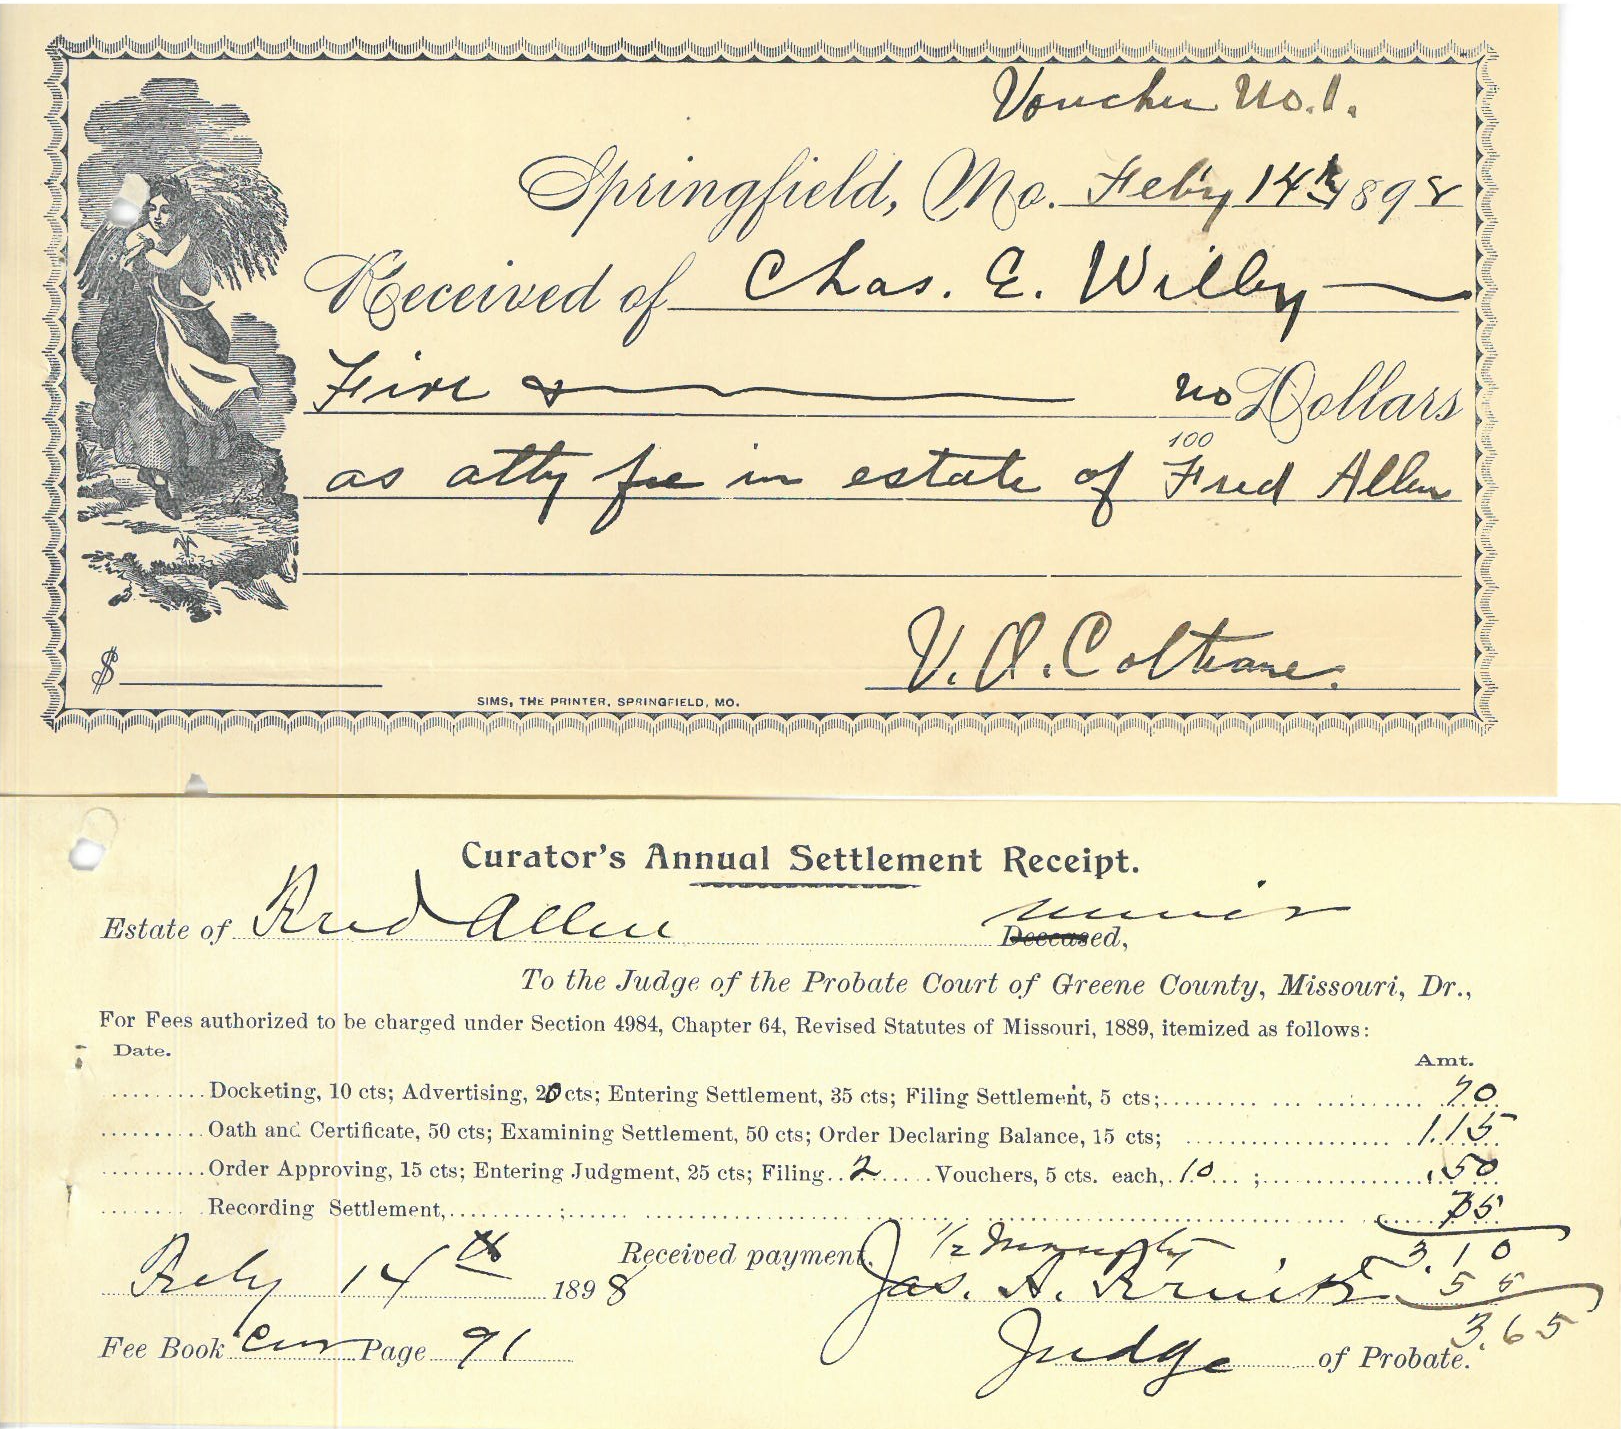 Voucher No. 1.
Springfield, Mo. Feb'y 14th 1898
Received of Chas. E. Wilby
Five & no/100 Dollars
as atty fee in estate of Fred Allen
V. O. Coltrane.
$
SIMS, THE PRINTER, SPRINGFIELD, MO.
Curator's Annual Settlement Receipt.
Estate of Fred Allen Minor Deceased,
To the Judge of the Probate Court of Greene County, Missouri, Dr.,
For Fees authorized to be charged under Section 4984, Chapter 64, Revised Statutes of Missouri, 1889, itemized as follows:
Date. Amt.
Docketing, 10 cts; Advertising, 20 cts; Entering Settlement, 35 cts; Filing Settlement, 5 cts; 70
Oath and Certificate, 50 cts; Examining Settlement, 50 cts; Order Declaring Balance, 15 cts; 1.15
Order Approving, 15 cts; Entering Judgment, 25 cts; Filing 2 Vouchers, 5 cts. each, 10 ; .50
Recording Settlement, ; 75
Received payment, 1/2 3.10
Feby 14th 1898 Jas. A. 55
3.65
Fee Book Cur Page 91 Judge of Probate.